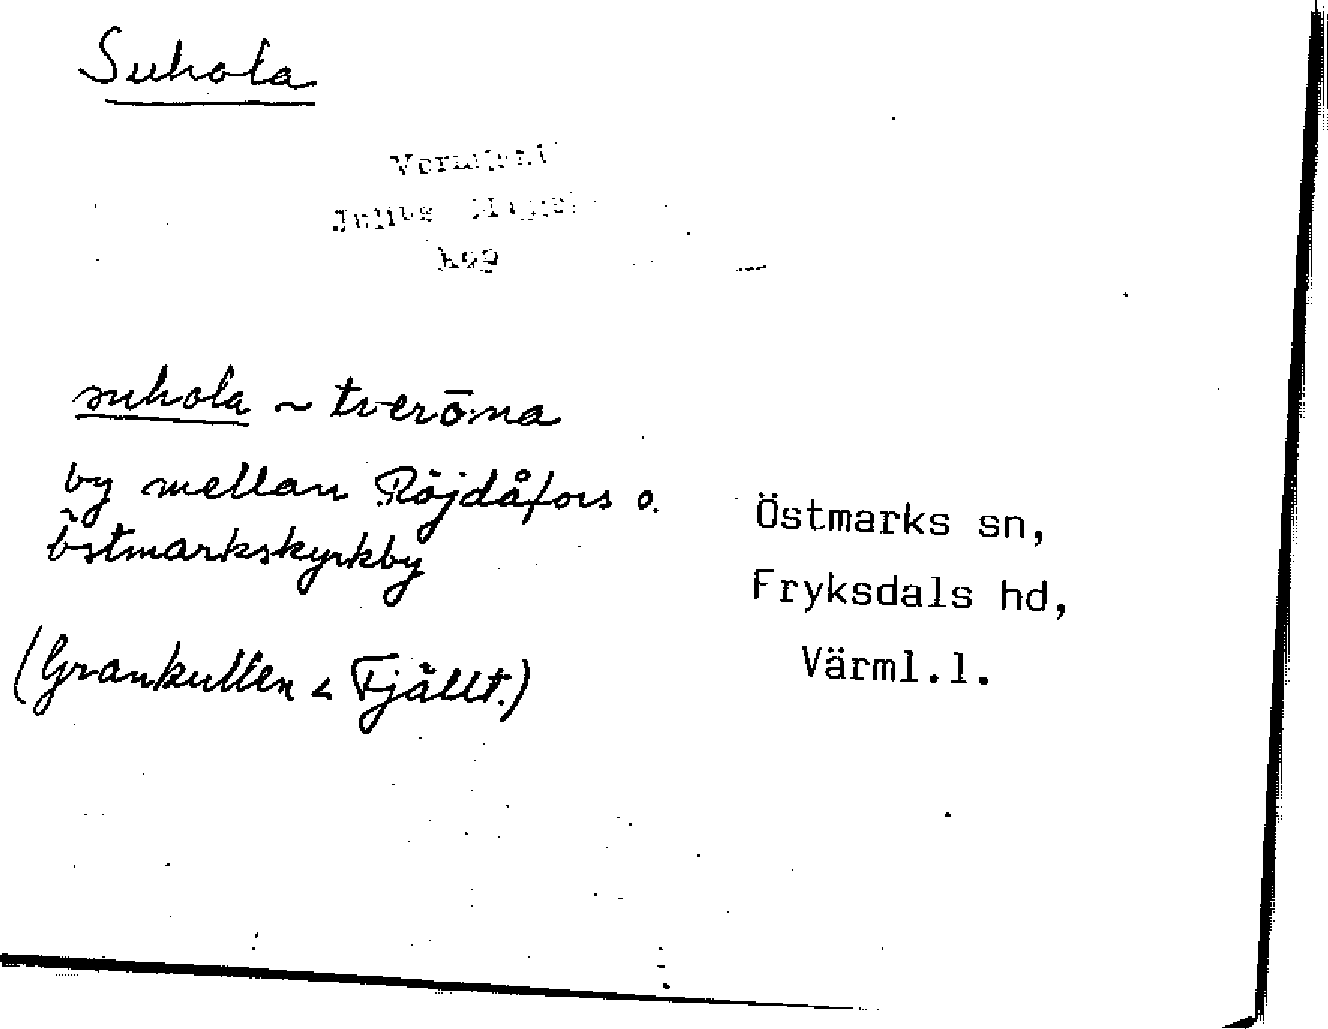 Suhola
Julius
suhola ~ tverōna
by mellan Röjdåfors o.
Östmarkskyrkby
(Grankullen < Fjällt.)
Östmarks sn,
Fryksdals hd,
Värml.l.